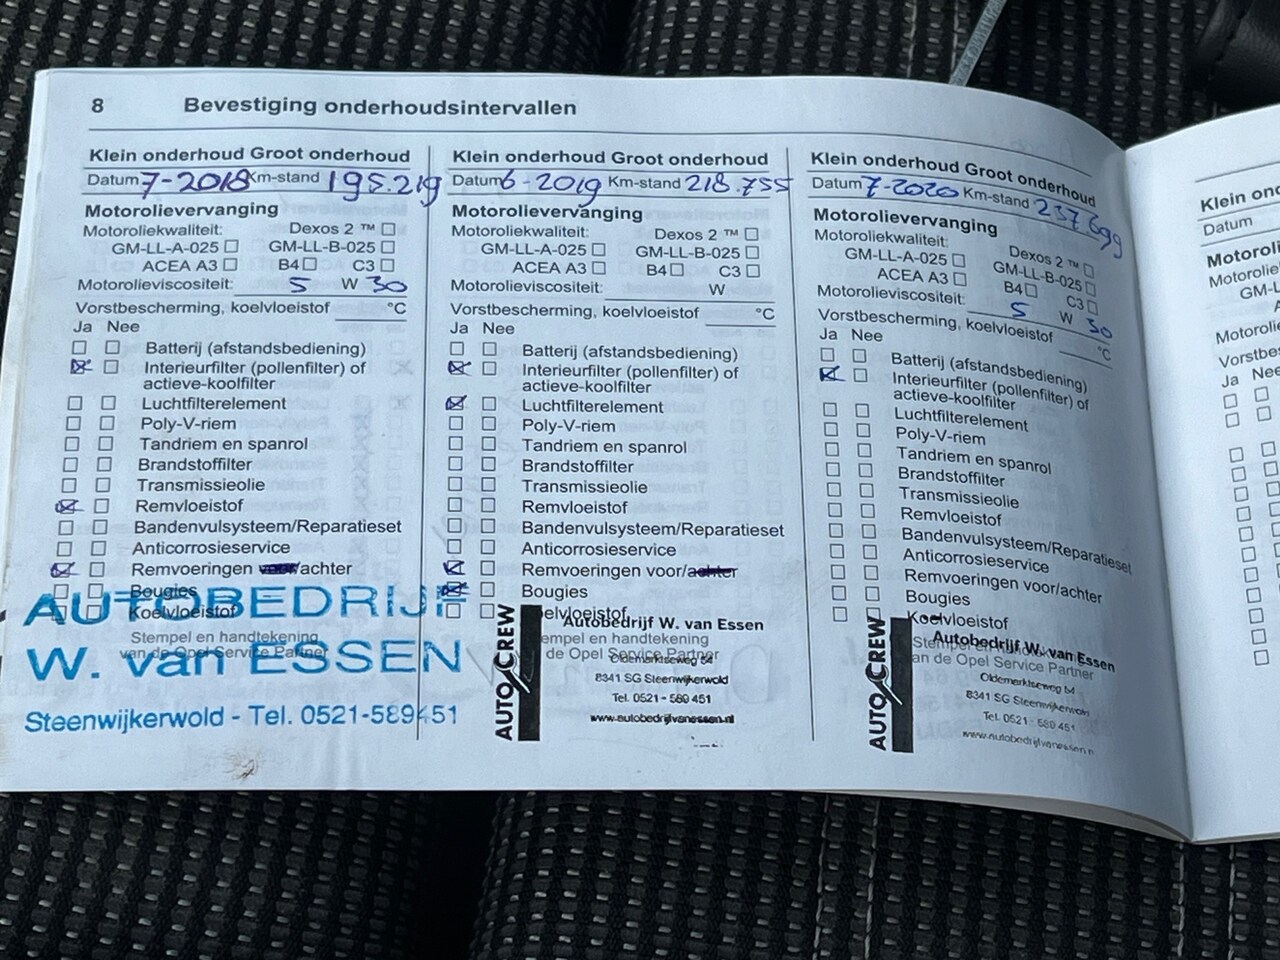 8 Bevestiging onderhoudsintervallen
Klein onderhoud Groot onderhoud
Datum 7-2018 Km-stand 195.219
Motorolievervanging
Motoroliekwaliteit: Dexos 2 ™ ☐
GM-LL-A-025 ☐ GM-LL-B-025 ☐
ACEA A3 ☐ B4 ☐ C3 ☐
Motorolieviscositeit: 5 W 30
Vorstbescherming, koelvloeistof °C
Ja Nee
☐ ☐ Batterij (afstandsbediening)
☒ ☐ Interieurfilter (pollenfilter) of
actieve-koolfilter
☐ ☐ Luchtfilterelement
☐ ☐ Poly-V-riem
☐ ☐ Tandriem en spanrol
☐ ☐ Brandstoffilter
☐ ☐ Transmissieolie
☒ ☐ Remvloeistof
☐ ☐ Bandenvulsysteem/Reparatieset
☐ ☐ Anticorrosieservice
☒ ☐ Remvoeringen /achter
☐ ☐ Bougies
☐ ☐ Koelvloeistof
Stempel en handtekening
van de Opel Service Partner
AUTOBEDRIJF
W. van ESSEN
Steenwijkerwold - Tel. 0521-589451
Klein onderhoud Groot onderhoud
Datum 6-2019 Km-stand 218.755
Motorolievervanging
Motoroliekwaliteit: Dexos 2 ™ ☐
GM-LL-A-025 ☐ GM-LL-B-025 ☐
ACEA A3 ☐ B4 ☐ C3 ☐
Motorolieviscositeit: W
Vorstbescherming, koelvloeistof °C
Ja Nee
☐ ☐ Batterij (afstandsbediening)
☒ ☐ Interieurfilter (pollenfilter) of
actieve-koolfilter
☒ ☐ Luchtfilterelement
☐ ☐ Poly-V-riem
☐ ☐ Tandriem en spanrol
☐ ☐ Brandstoffilter
☐ ☐ Transmissieolie
☐ ☐ Remvloeistof
☐ ☐ Bandenvulsysteem/Reparatieset
☐ ☐ Anticorrosieservice
☒ ☐ Remvoeringen voor/achter
☒ ☐ Bougies
☐ oelvloeistof
empel en handtekening
de Opel Service Partner
AUTO CREW
Autobedrijf W. van Essen
Oldemarktseweg 54
8341 SG Steenwijkerwold
Tel. 0521 - 589 451
www.autobedrijfvanessen.nl
Klein onderhoud Groot onderhoud
Datum 7-2020 Km-stand 237699
Motorolievervanging
Motoroliekwaliteit: Dexos 2 ™ ☐
GM-LL-A-025 ☐ GM-LL-B-025 ☐
ACEA A3 ☐ B4 ☐ C3 ☐
Motorolieviscositeit: 5 W 30
Vorstbescherming, koelvloeistof °C
Ja Nee
☐ ☐ Batterij (afstandsbediening)
☒ ☐ Interieurfilter (pollenfilter) of
actieve-koolfilter
☐ ☐ Luchtfilterelement
☐ ☐ Poly-V-riem
☐ ☐ Tandriem en spanrol
☐ ☐ Brandstoffilter
☐ ☐ Transmissieolie
☐ ☐ Remvloeistof
☐ ☐ Bandenvulsysteem/Reparatieset
☐ ☐ Anticorrosieservice
☐ ☐ Remvoeringen voor/achter
☐ ☐ Bougies
☐ ☐ Koelvloeistof
Stempel en handtekening
an de Opel Service Partner
AUTO CREW
Autobedrijf W. van Essen
Oldemarktseweg 54
8341 SG Steenwijkerwold
Tel. 0521 - 589 451
www.autobedrijfvanessen.n
Klein ond
Datum
Motoroli
Motoroliek
GM-L
Motorolie
Vorstbes
Ja Nee